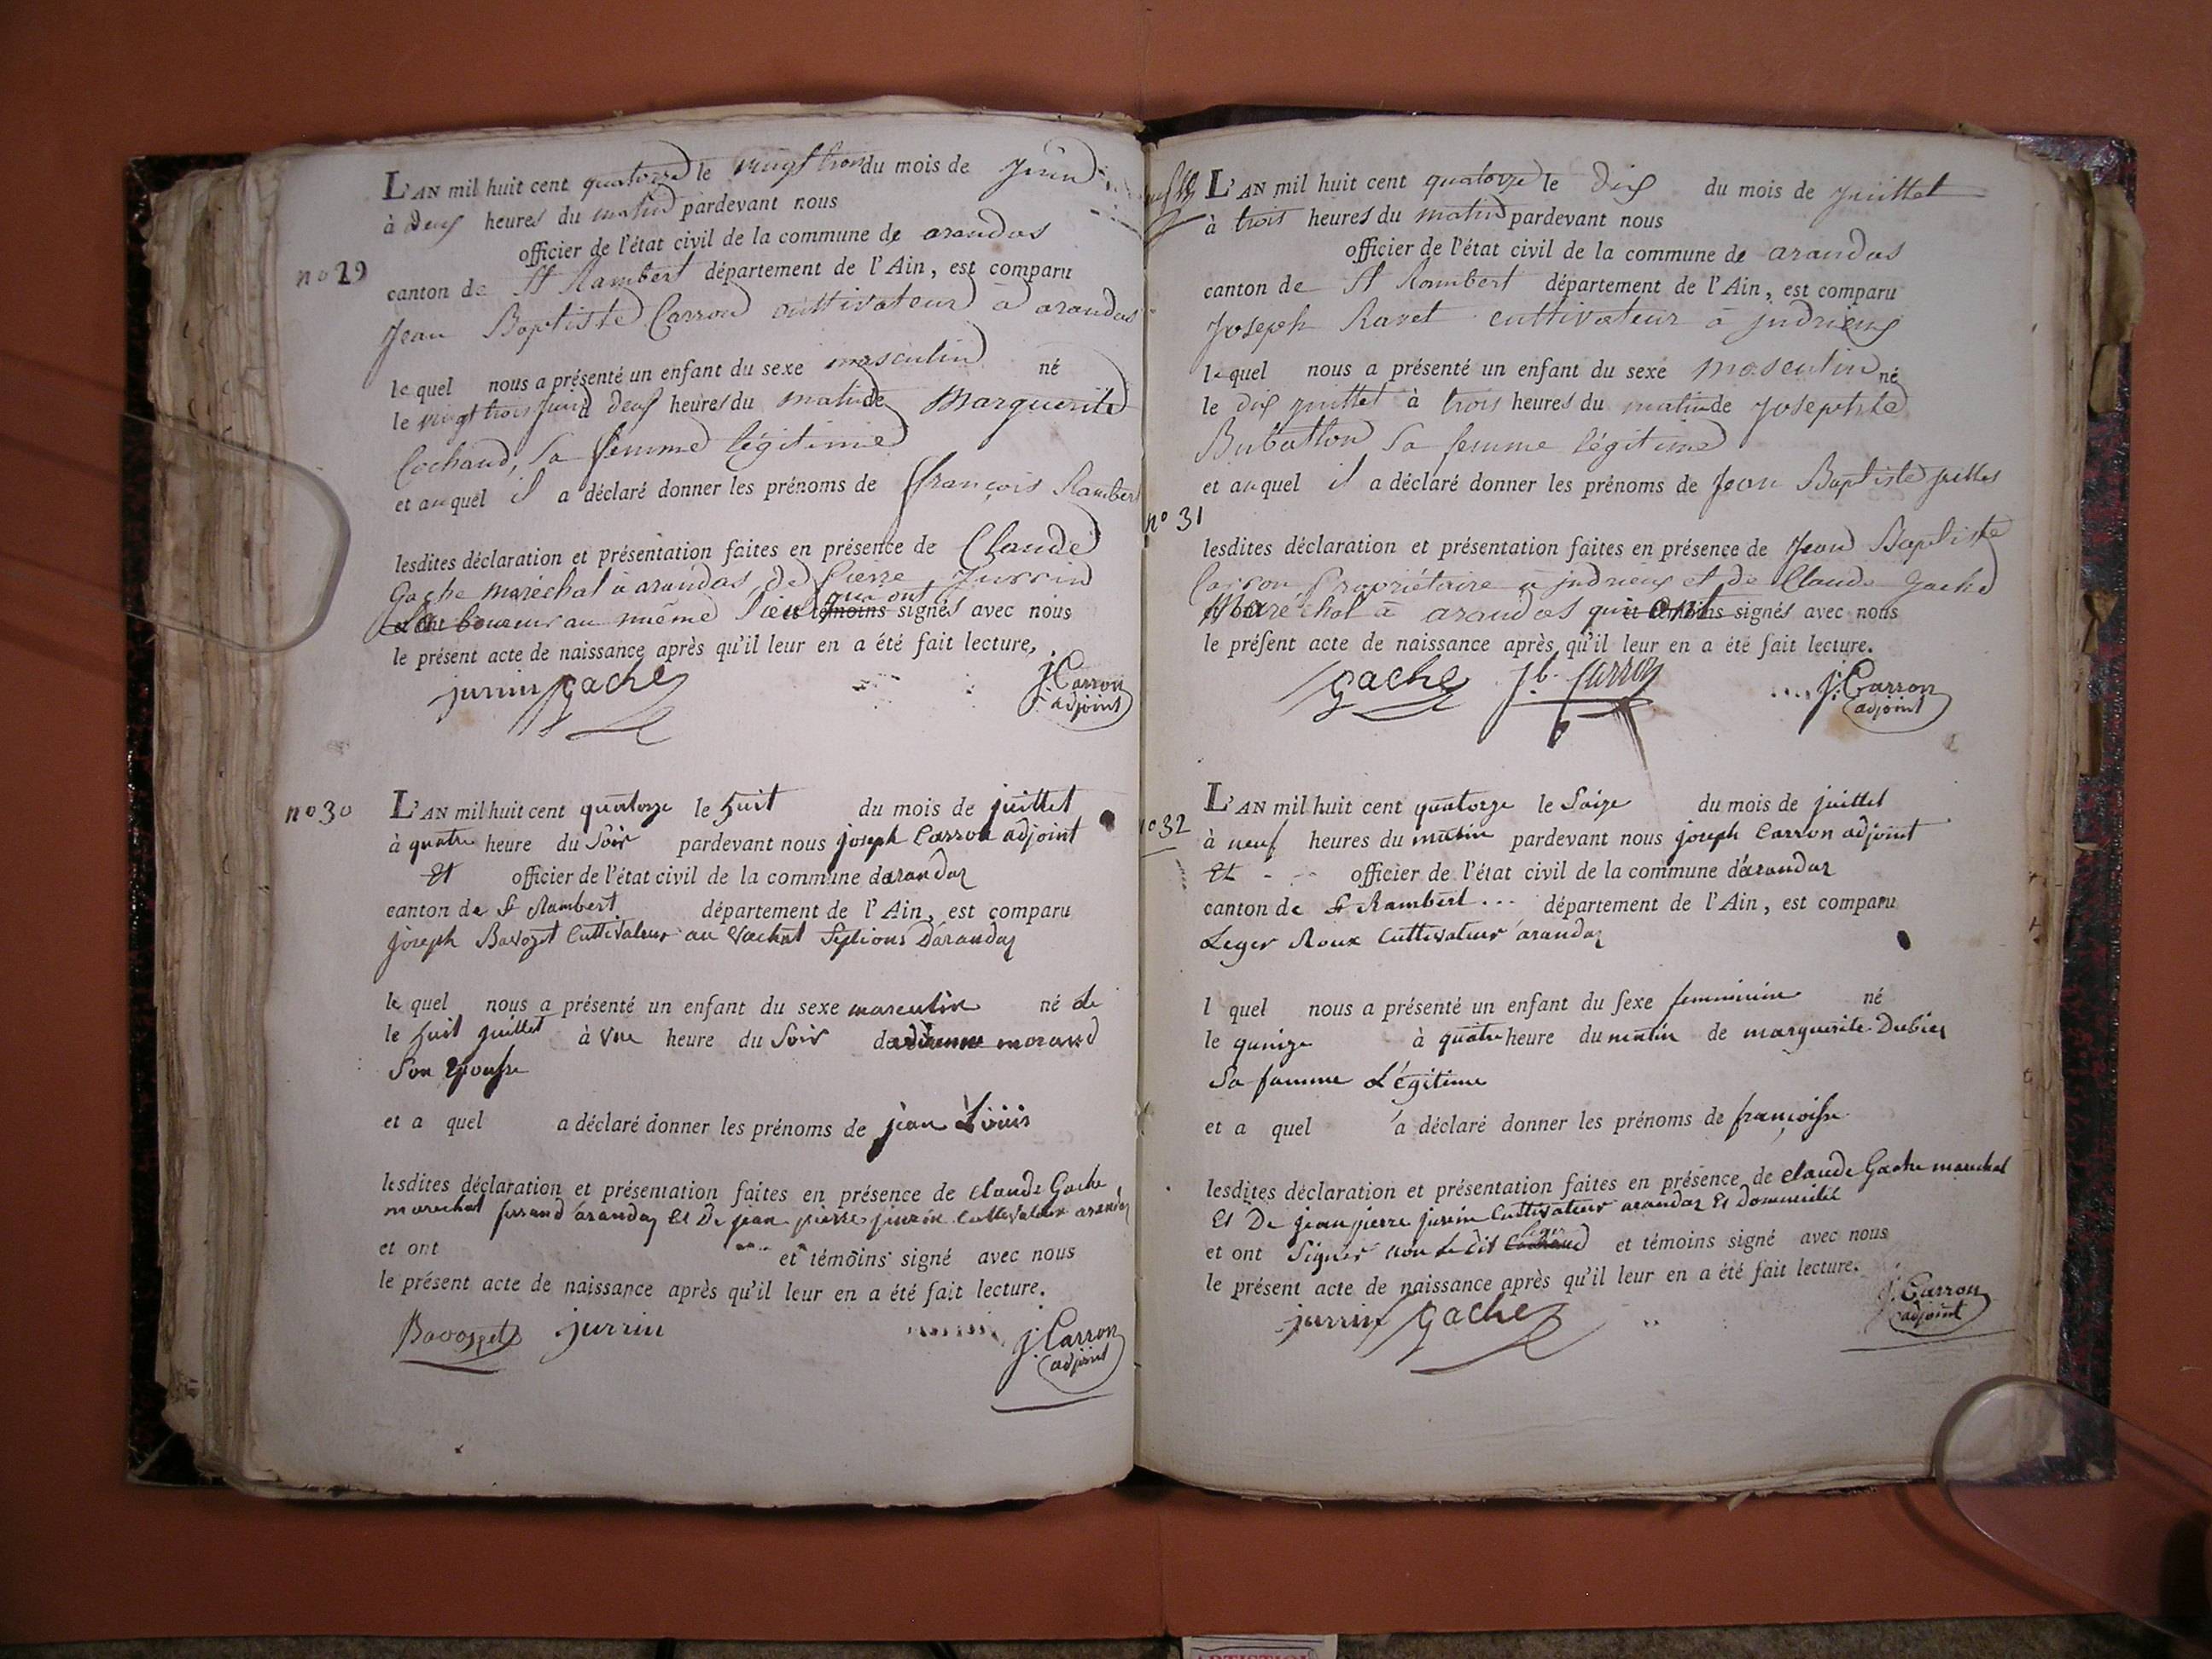 L'AN mil huit cent quatorze le vingt trois du mois de Juin
à deux heures du matin pardevant nous
officier de l'état civil de la commune de arandas
no 29
canton de St Rambert département de l'Ain, est comparu
Jean Baptiste Carron cultivateur à arandas
lequel nous a présenté un enfant du sexe masculin né
le vingt trois Juin à deux heures du matin de Marguerite
Cochand, sa femme légitime
et auquel il a déclaré donner les prénoms de françois Rambert
lesdites déclaration et présentation faites en présence de Claude
Gache maréchal à arandas, de Pierre Jurrin
qui ont
laboureur au même lieu et témoins signés avec nous
le présent acte de naissance après qu'il leur en a été fait lecture,
jurrin Gache J. Carron
adjoint
no 30
L'AN mil huit cent quatorze le huit du mois de juillet
à quatre heure du Soir pardevant nous joseph Carron adjoint
Et officier de l'état civil de la commune darandas
canton de St Rambert département de l'Ain, est comparu
joseph Bavozet Cultivateur au vachat Sections Darandas
le quel nous a présenté un enfant du sexe masculin né de
le huit juillet à vne heure du Soir de morand
Son Epousse
et a quel a déclaré donner les prénoms de jean Louis
lesdites déclaration et présentation faites en présence de Claude Gache
marechal ferrand arandas Et De jean pierre jurrin Cultivateur arandas
et ont et témoins signé avec nous
le présent acte de naissance après qu'il leur en a été fait lecture.
Bavozet jurrin J. Carron
adjoint
L'AN mil huit cent quatorze le dix du mois de juillet
à trois heures du matin pardevant nous
officier de l'état civil de la commune de arandas
canton de St Rambert département de l'Ain, est comparu
Joseph Ravet cultivateur à indrieux
lequel nous a présenté un enfant du sexe masculin né
le dix juillet à trois heures du matin de Josephte
Bubatton sa femme légitime
et auquel il a déclaré donner les prénoms de Jean Baptiste
no 31
lesdites déclaration et présentation faites en présence de Jean Baptiste
Carron Propriétaire à indrieux et de Claude Gache
Maréchal à arandas qui ont et témoins signés avec nous
le présent acte de naissance après qu'il leur en a été fait lecture.
Gache J. b. Carron J. Carron
adjoint
no 32
L'AN mil huit cent quatorze le Saize du mois de juillet
à neuf heures du matin pardevant nous joseph Carron adjoint
Et officier de l'état civil de la commune d'arandas
canton de St Rambert... département de l'Ain, est comparu
Leger Roux Cultivateur arandas
l quel nous a présenté un enfant du sexe femminin né
le quinze à quatre heure du matin de marguerite Dubiez
Sa famme Légitime
et a quel a déclaré donner les prénoms de françoisse
lesdites déclaration et présentation faites en présence de claude Gache marechal
Et De jean pierre jurrin Cultivateur arandas Et Domicilié
leger
et ont Signer non Le dit Cochand et témoins signé avec nous
le présent acte de naissance après qu'il leur en a été fait lecture.
jurrin Gache J. Carron
adjoint